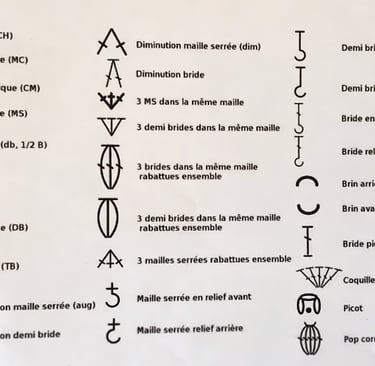 CH)
e (MC)
que (CM)
e (MS)
(db, 1/2 B)
e (DB)
(TB)
on maille serrée (aug)
on demi bride
Diminution maille serrée (dim)
Diminution bride
3 MS dans la même maille
3 demi brides dans la même maille
3 brides dans la même maille
rabattues ensemble
3 demi brides dans la même maille
rabattues ensemble
3 mailles serrées rabattues ensemble
Maille serrée en relief avant
Maille serrée relief arrière
Demi bri
Demi bri
Bride en
Bride rel
Brin arri
Brin ava
Bride pi
Coquille
Picot
Pop corn